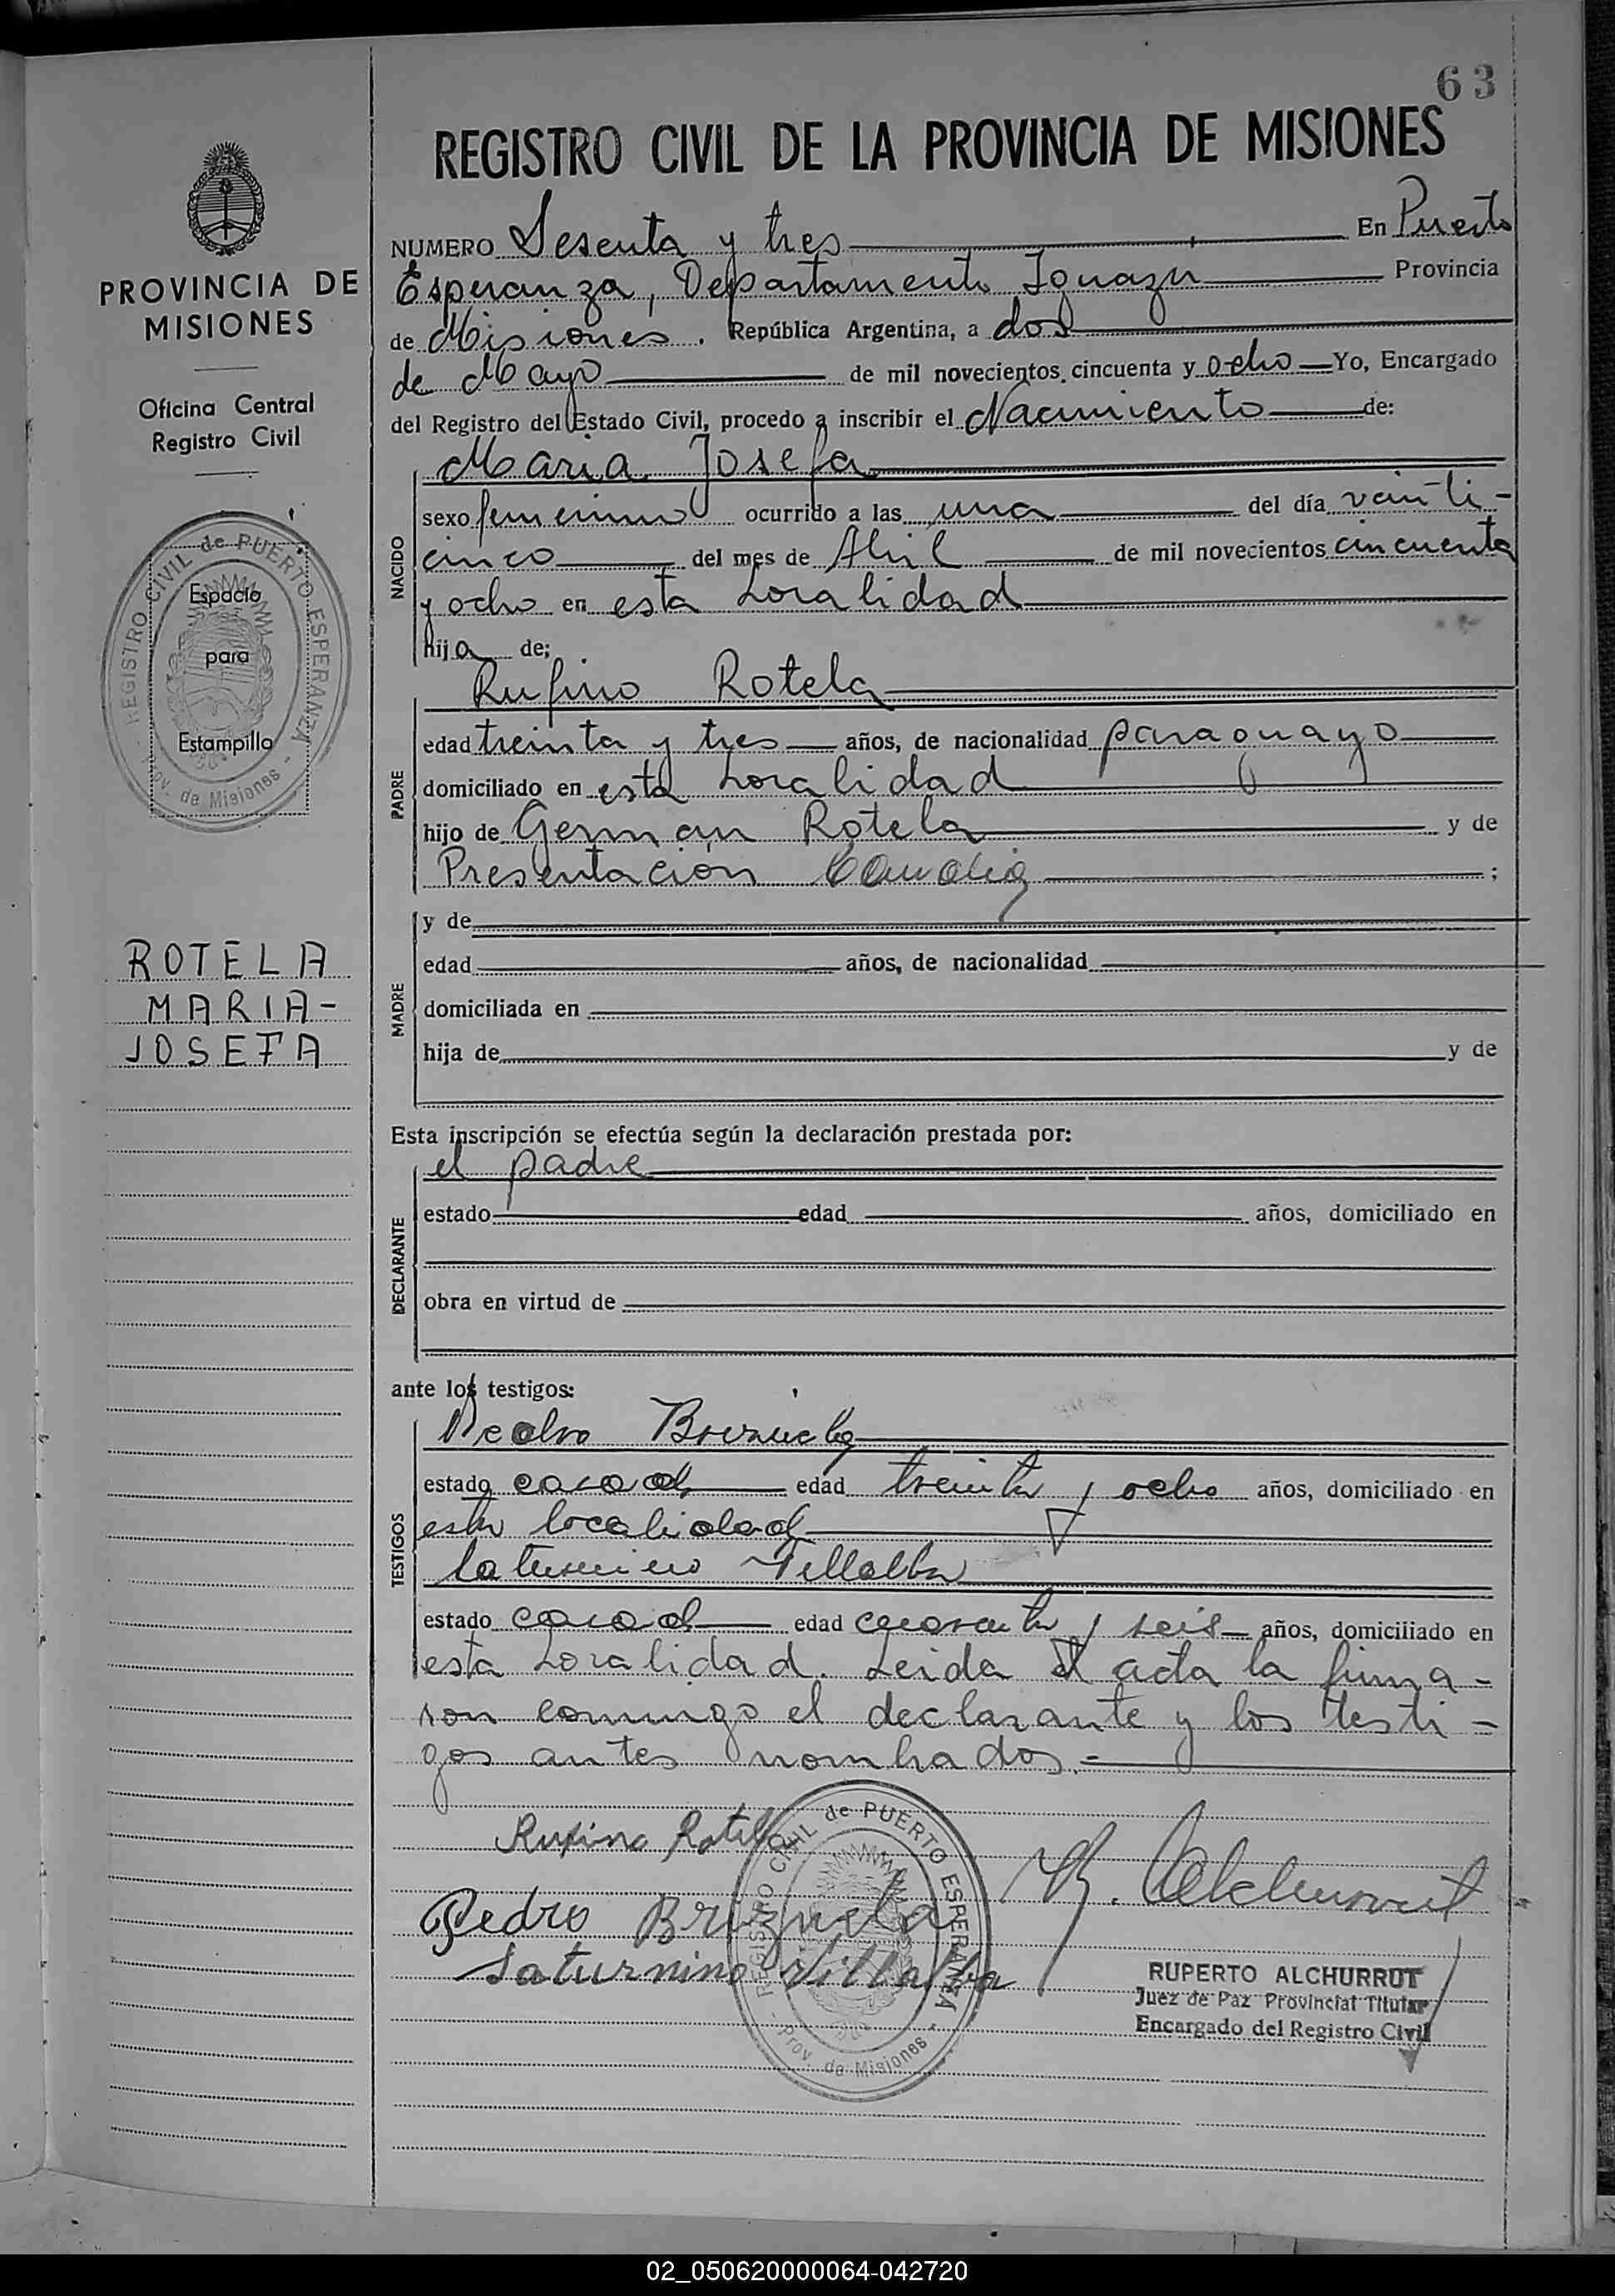 63
REGISTRO CIVIL DE LA PROVINCIA DE MISIONES
NUMERO Sesenta y tres En Puerto
Esperanza, Departamento Iguazu Provincia
de Misiones. República Argentina, a dos
de Mayo de mil novecientos cincuenta y ocho Yo, Encargado
del Registro del Estado Civil, procedo a inscribir el Nacimiento de:
Maria Josefa
sexo femenino ocurrido a las una del día veinti-
cinco del mes de Abril de mil novecientos cincuenta
y ocho en esta Localidad
hija de;
Rufino Rotela
edad treinta y tres años, de nacionalidad paraguayo
domiciliado en esta Localidad
hijo de German Rotela y de
Presentación ;
y de
edad años, de nacionalidad
domiciliada en
hija de y de
Esta inscripción se efectúa según la declaración prestada por:
el padre
estado edad años, domiciliado en
obra en virtud de
ante los testigos:
Pedro Brizuela
estado casado edad treinta y ocho años, domiciliado en
esta localidad
Saturnino Villalba
estado casado edad cuarenta y seis años, domiciliado en
esta Localidad. Leida el acta la firma-
ron conmigo el declarante y los testi-
gos antes nombrados.-
NACIDO
PADRE
MADRE
DECLARANTE
TESTIGOS
Rufino Rotela
Pedro Brizuela
Saturnino Villalba
REGISTRO CIVIL de PUERTO ESPERANZA
- Prov. de Misiones -
R. Alchurrut
RUPERTO ALCHURRUT
Juez de Paz Provincial Titular
Encargado del Registro Civil
PROVINCIA DE
MISIONES
Oficina Central
Registro Civil
REGISTRO CIVIL de PUERTO ESPERANZA
- Prov. de Misiones -
Espacio
para
Estampilla
ROTELA
MARIA-
JOSEFA
02_050620000064-042720